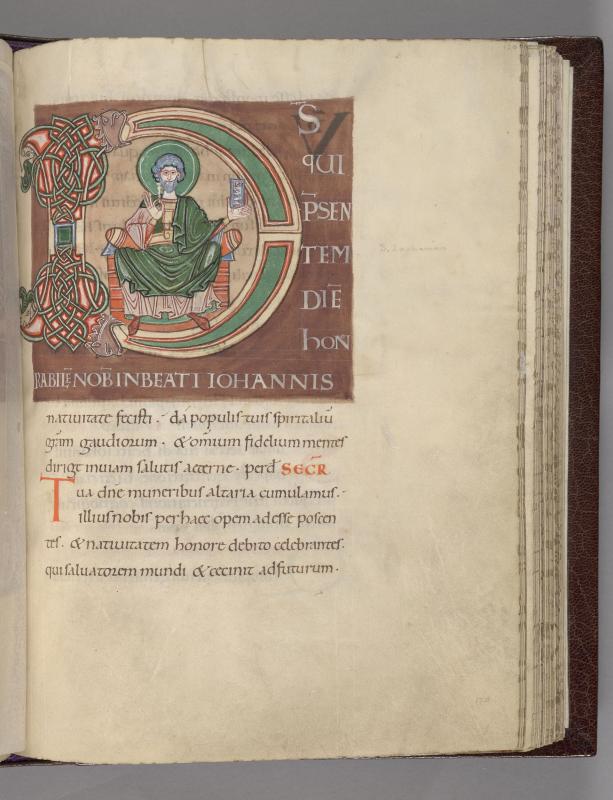 DS
qUI
P̄SEN
TEM
DIĒ
hON
RABILĒ NOB̄ IN BEATI IOHANNIS
natiuitate fecisti· da populis tuis spiritaliū
gr̄am gaudiorum· & om̄ium fidelium mentes
dirige in uiam salutis aeternę· per d̄ SECR̄
Tua dn̄e muneribus altaria cumulamus·
illius nobis per haec opem adesse poscen
tes· & natiuitatem honore debito celebrantes·
qui saluatorem mundi & cecinit adfuturum·